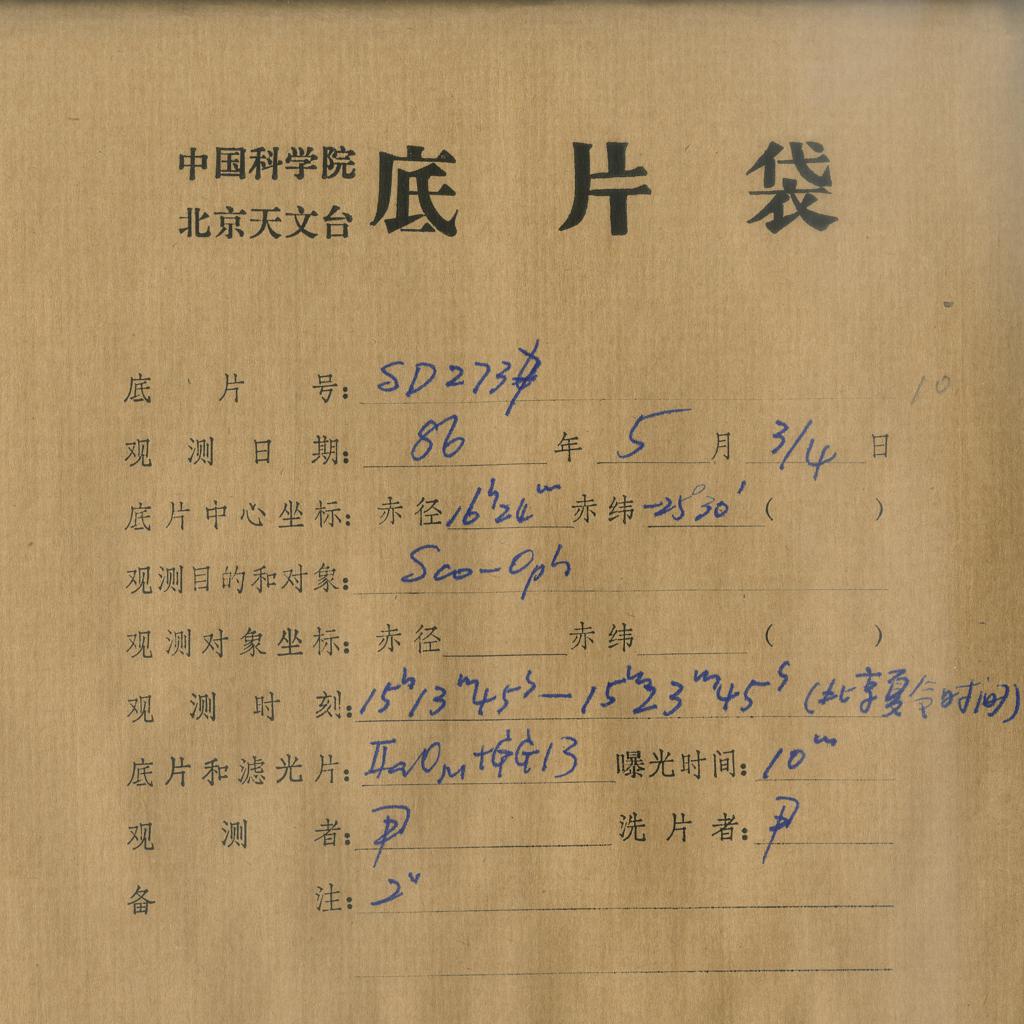 中国科学院
北京天文台
底片袋
底片号: SD273#
10
观测日期: 86 年 5 月 3/4 日
底片中心坐标: 赤径 16h24m 赤纬 -25°30′ ( )
观测目的和对象: Sco-Oph
观测对象坐标: 赤径 赤纬 ( )
观测时刻: 15h13m45s—15h23m45s (北京夏令时间)
底片和滤光片: IIaO +GG13 曝光时间: 10m
观测者: 尹 洗片者: 尹
备注: 2"